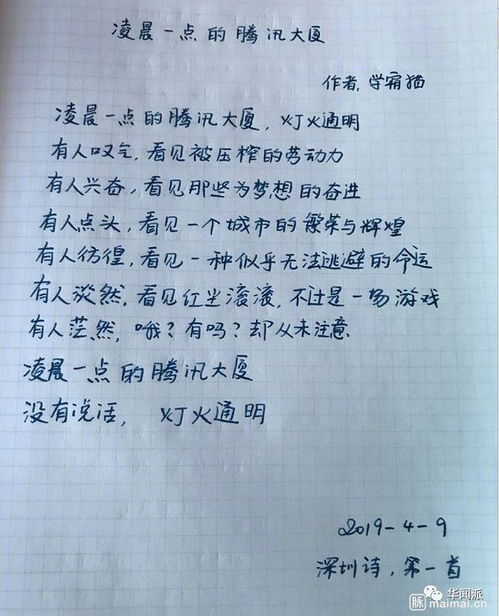 凌晨一点的腾讯大厦
作者,学宵猫
凌晨一点的腾讯大厦,灯火通明
有人叹气,看见被压榨的劳动力
有人兴奋,看见那些为梦想的奋进
有人点头,看见一个城市的繁荣与辉煌
有人彷徨,看见一种似乎无法逃避的命运
有人淡然,看见红尘滚滚,不过是一场游戏
有人茫然,哦?有吗?却从未注意
凌晨一点的腾讯大厦
没有说话,灯火通明
2019-4-9
深圳诗,第一首
华闻派
脉 maimai.cn